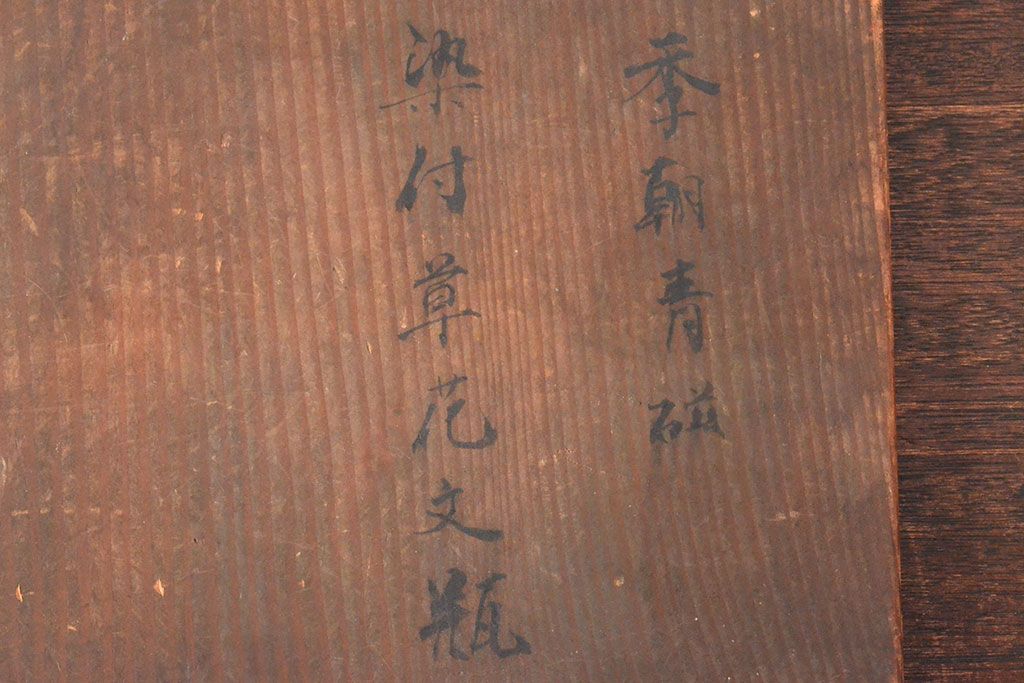 李朝青磁
染付草花文瓶